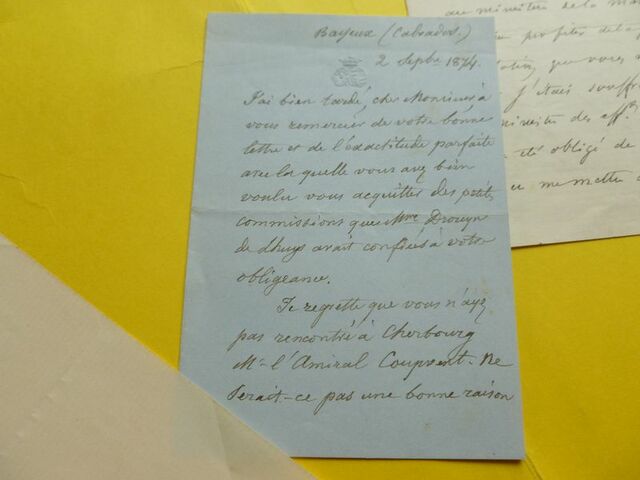 Bayeux (Calvados.)
2 Septbre 1874.
J'ai bien tardé, cher Monsieur, à
vous remercier de votre bonne
lettre et de l'exactitude parfaite
avec laquelle vous avez bien
voulu vous acquitter des petites
commissions que Mme Drouyn
de Lhuys avait confiées à votre
obligeance.
Je regrette que vous n'ayez
pas rencontré à Cherbourg
Mr l'Amiral Coupvent. Ne
serait-ce pas une bonne raison
au ministère de la
profiter de la
que vous
j'étais
ministre des aff.
été obligé de
me mettre